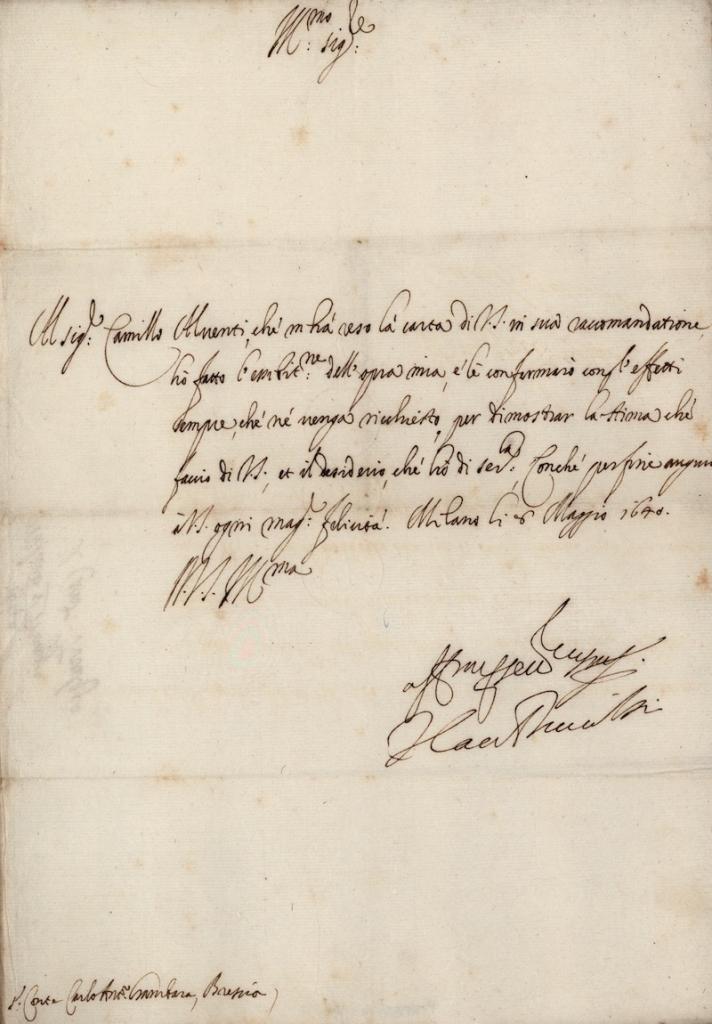 Ill.mo sig.re
Al sig.r Camillo Aluenti, ché m'há reso lá carta di V.S. in sua raccomandatione,
hó fatto l'esibit.ne dell'opra mia, é le confermaró con gl'effetti
sempre, ché né uenga richiesto, per dimostrar la stima ché
faccio di V.S., et il desiderio, ché hó di ser.la; Conché per fine auguro
à V.S. ogni mag.r felicitá. Milano li 16 Maggio 1640.
D. V.S. Ill.ma
S.r Conte Carlo Ant.o Gambara, Brescia,